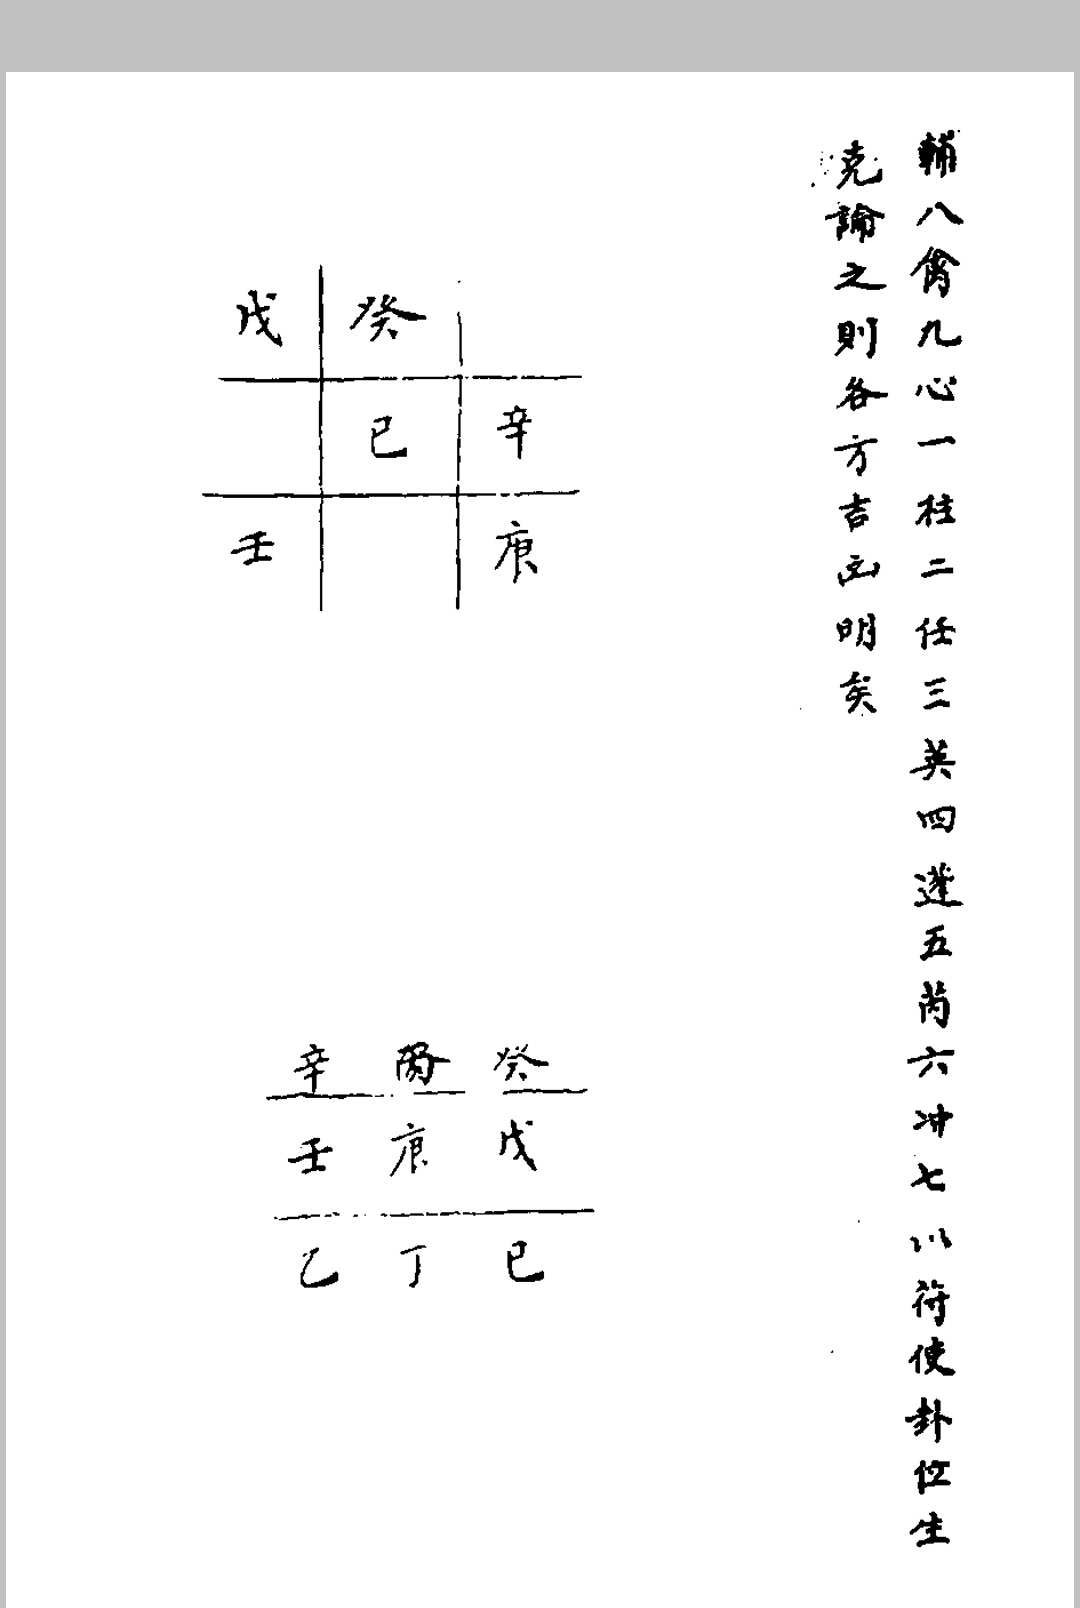 輔八禽九心一柱二任三英四蓬五芮六冲七以符使卦位生
克論之則各方吉凶明矣
戊 癸
己 辛
壬 庚
辛 癸
壬 庚 戊
乙 丁 己